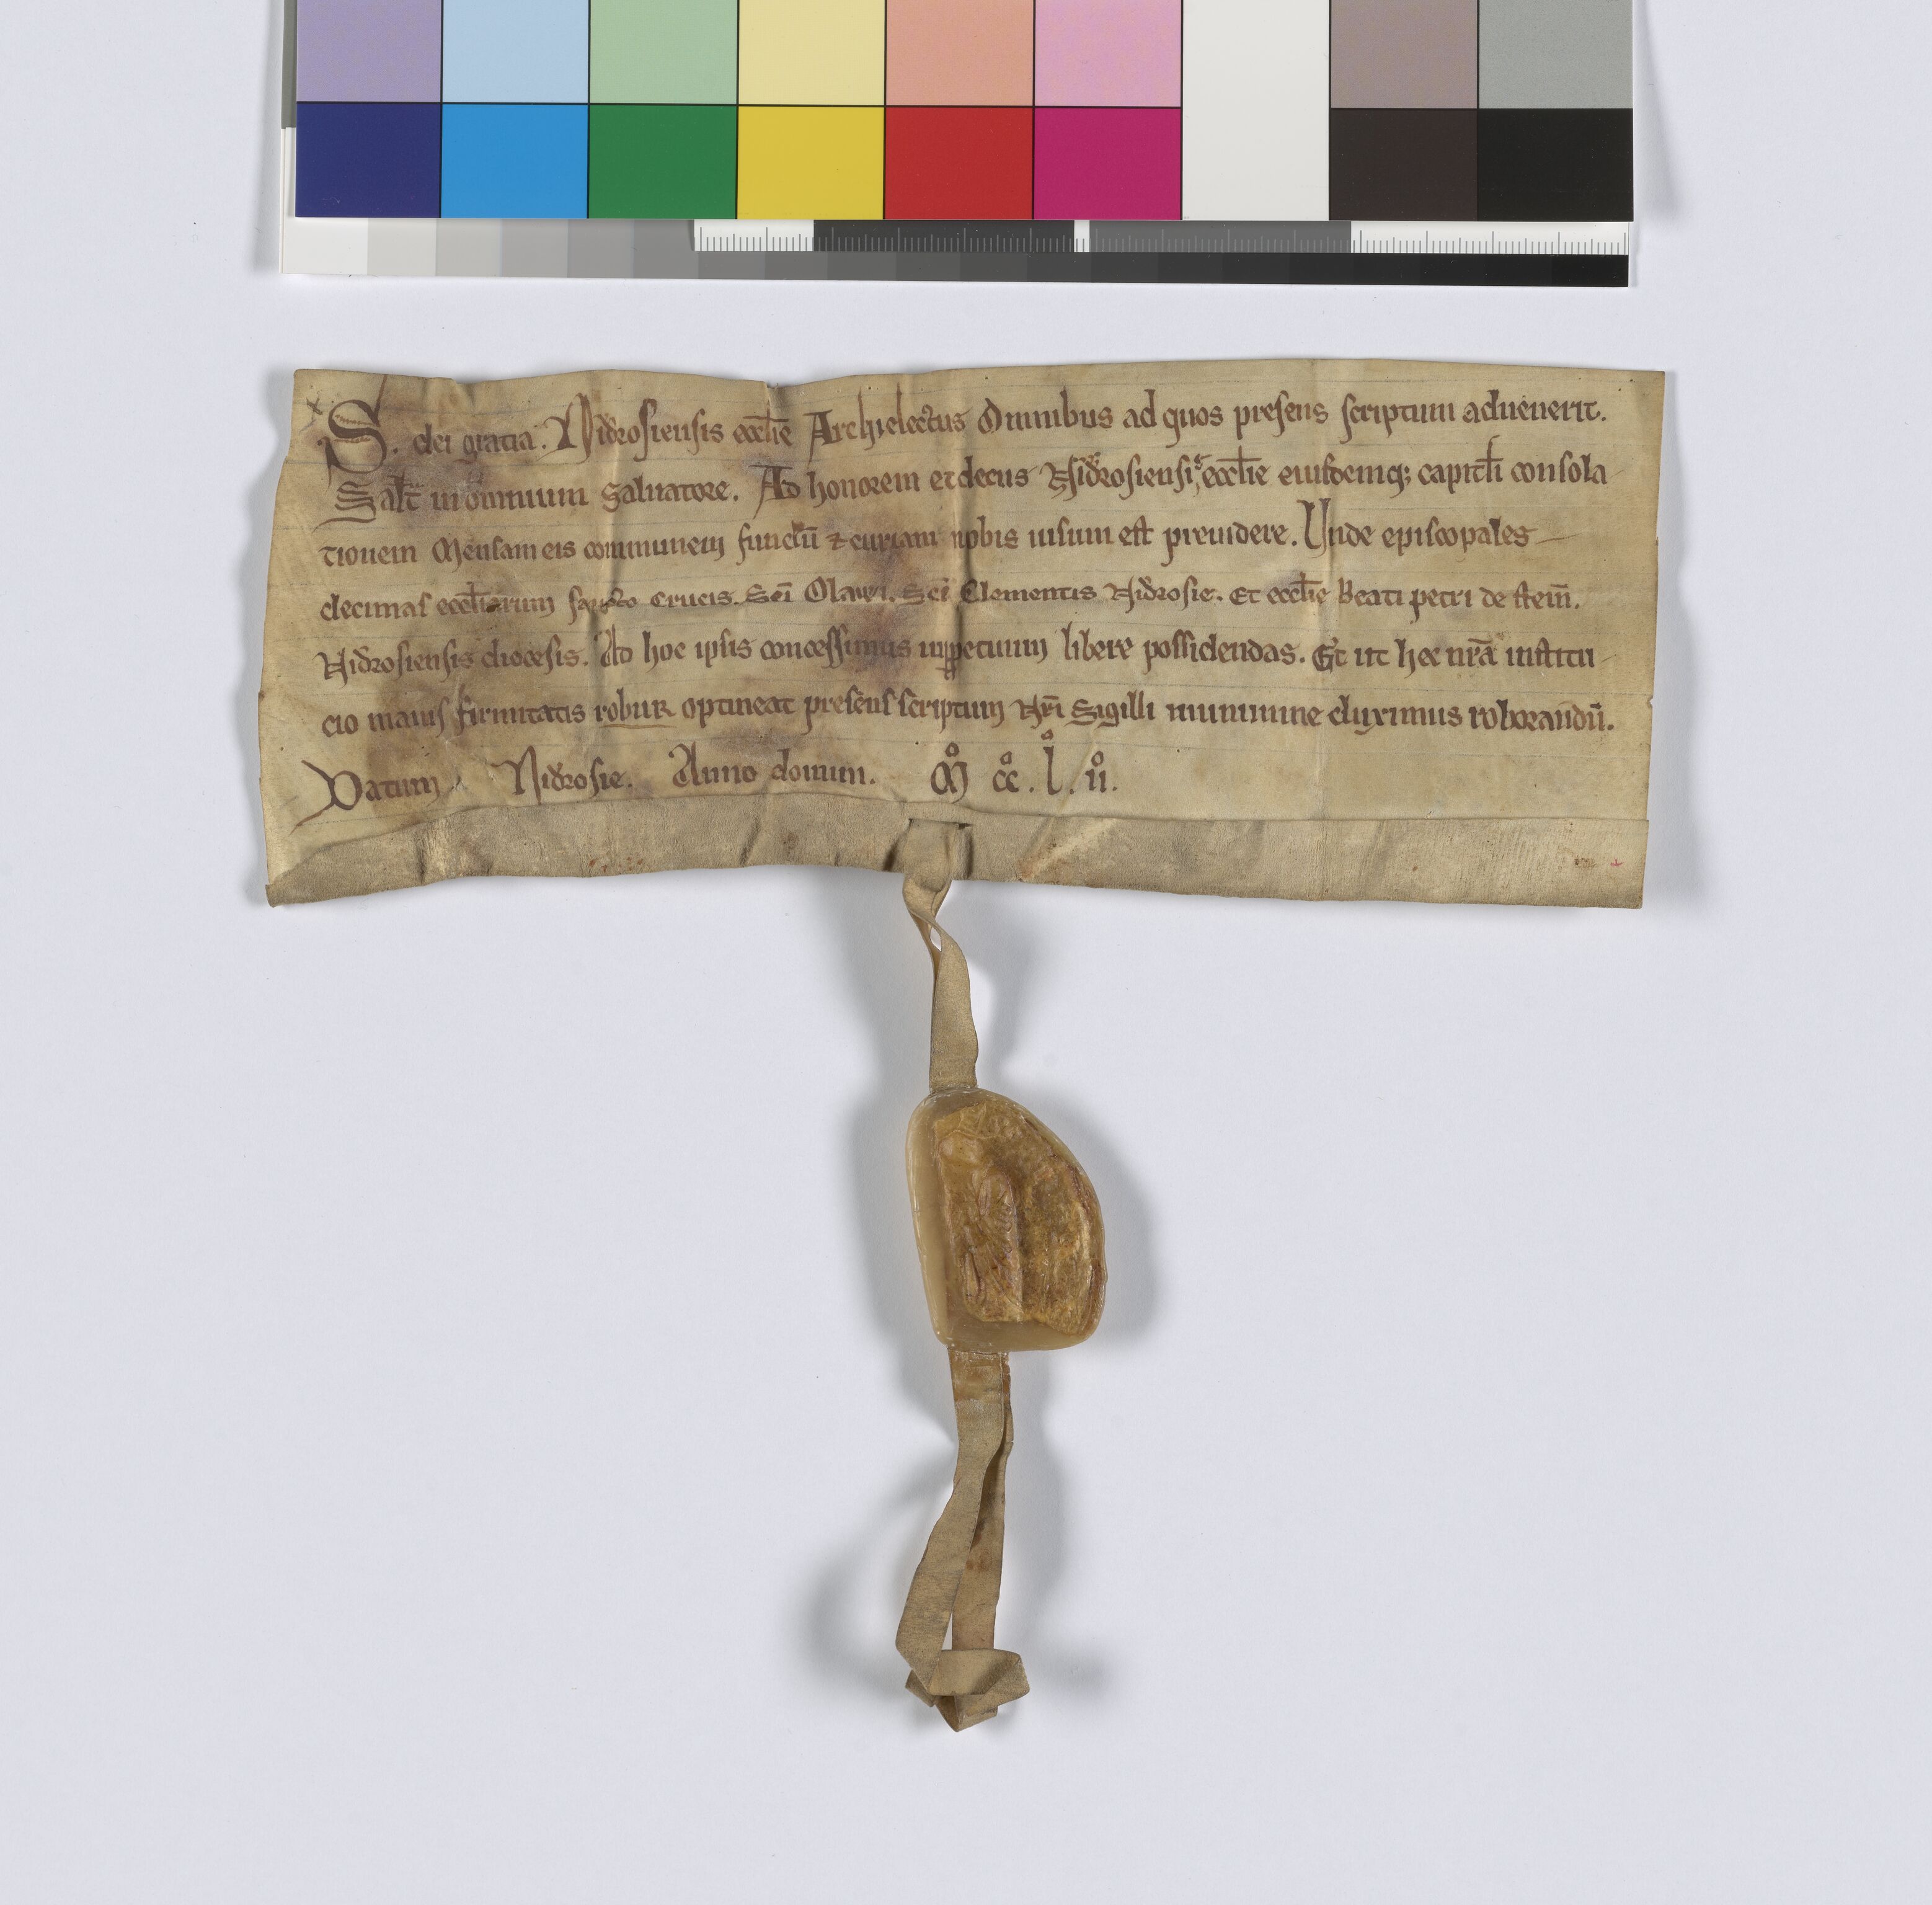 S. dei gratia. Nidrosiensis eccl̄ie Archielectus Omnibus ad quos presens scriptum aduenerit.
Salt̄ in omnium saluatore. Ad honorem et decus Nidrosiensis eccl̄ie eiusdemq; capitl̄i consola
tionem Mensam eis communem functū ⁊ curiam nobis uisum est preuidere. Unde episcopales
decimas eccl̄iarum sancte Crucis. Sc̄i Olawi. Sc̄i Clementis Nidrosie. Et eccl̄ie Beati petri de stein̄.
Nidrosiensis diocesis. Ad hoc ipsis concessimus inꝑpetuum libere possidendas. Et ut hec nr̄a institu
cio maius firmitatis robur optineat presens scriptum Nr̄i Sigilli munimine duximus roborandū.
Datum Nidrosie. Anno domini. M̊ c̊c. l̊. i̊i.